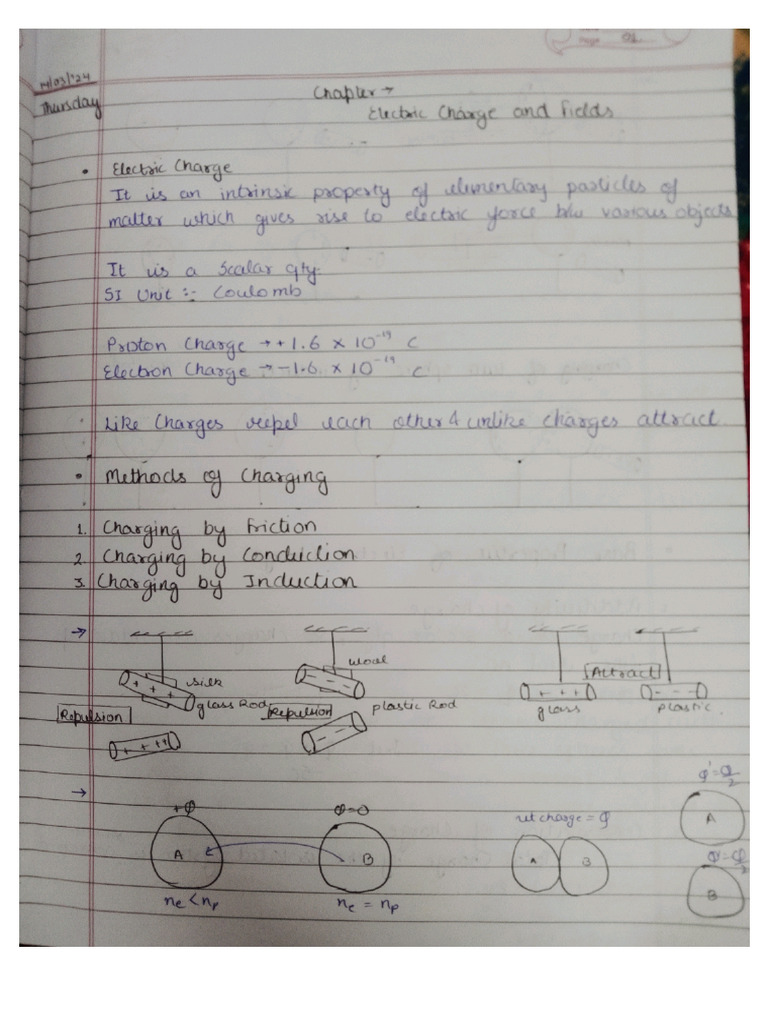 Page 01
14/03/'24
Thursday
Chapter →
Electric Charge and Fields
• Electric Charge
It is an intrinsic property of elementary particles of
matter which gives rise to electric force b/w various objects
It is a Scalar qty.
SI Unit :- Coulomb
Proton Charge → +1.6 × 10⁻¹⁹ C
Electron Charge → -1.6 × 10⁻¹⁹ C
Like Charges repel each other & unlike charges attract.
• Methods of Charging
1. Charging by Friction
2. Charging by Conduction
3. Charging by Induction
→
silk
+ + + +
glass Rod
Repulsion
+ + ++
wool
- - -
plastic Rod
Repulsion
Attract
+ + + +
glass
- - -
plastic
→
+Q
A
ne < np
Q=0
B
ne = np
net charge = Q
A B
Q' = Q/2
A
Q' = Q/2
B